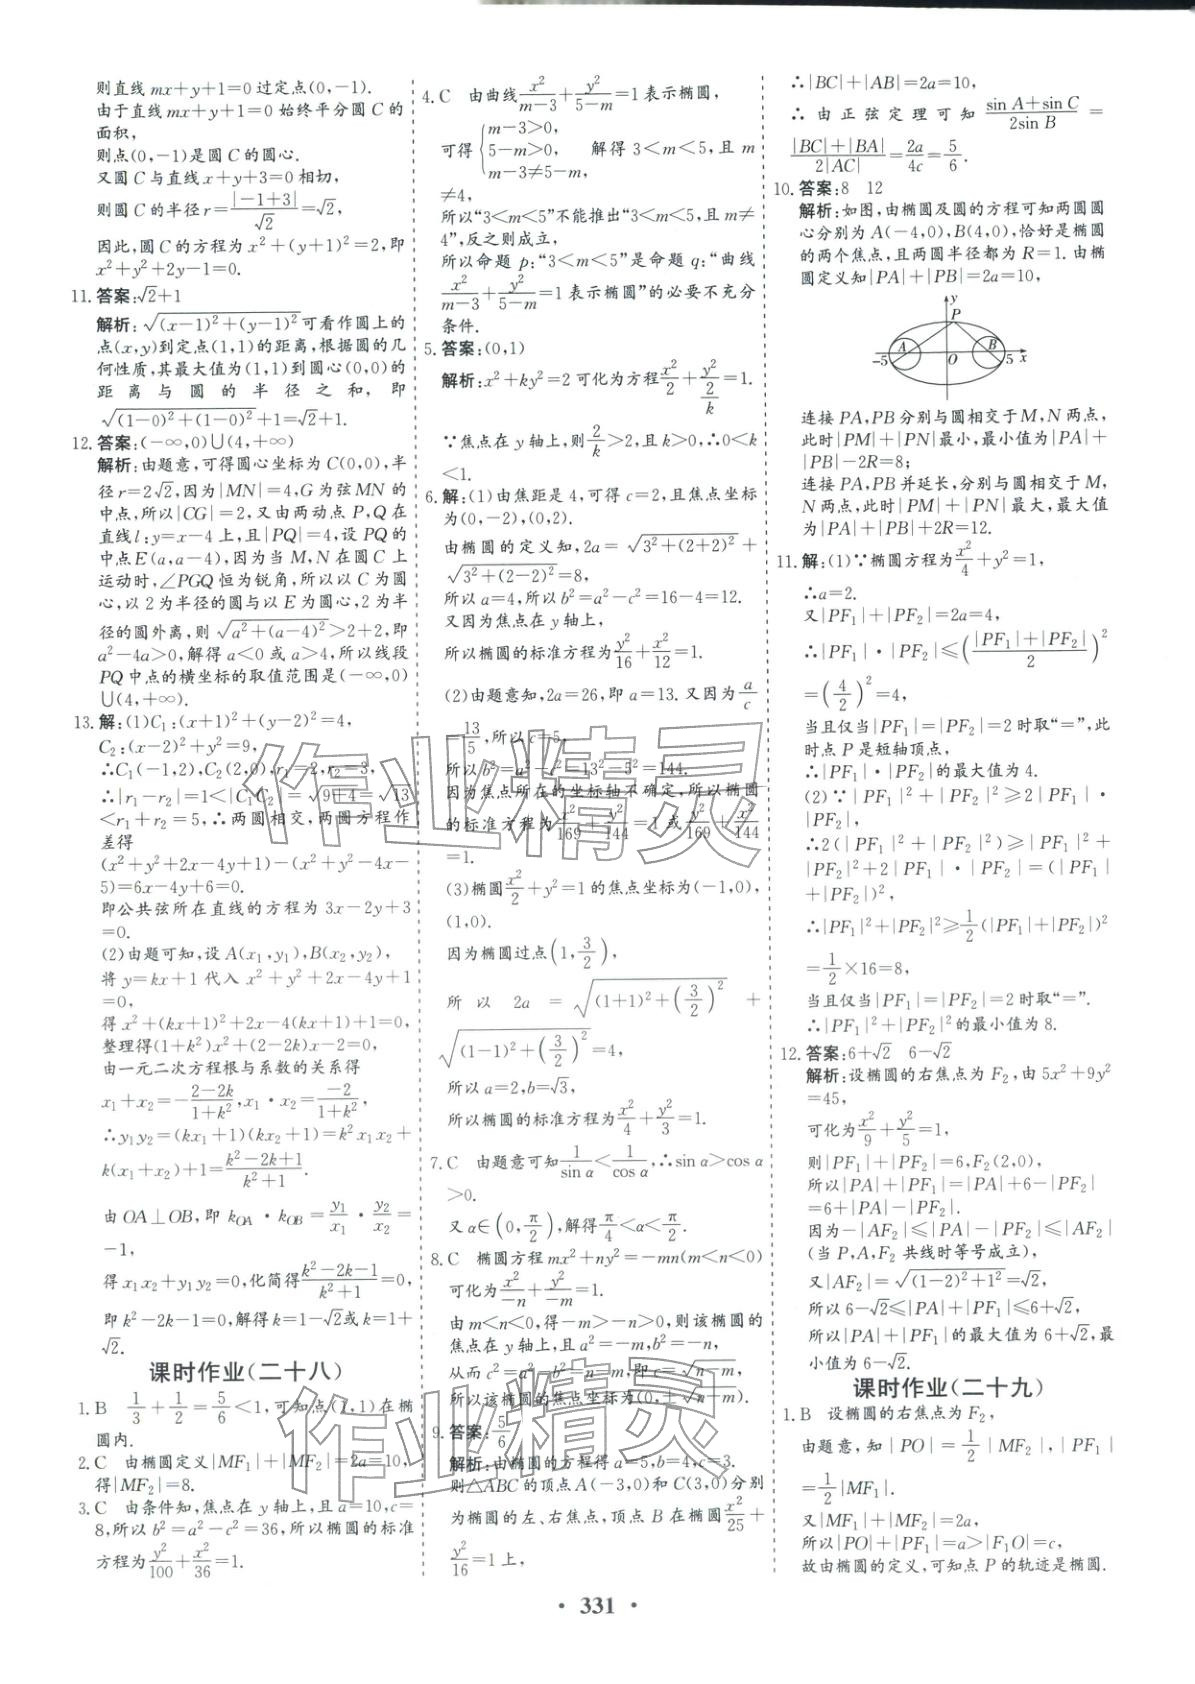 则直线 mx+y+1=0 过定点(0,-1).
由于直线 mx+y+1=0 始终平分圆 C 的
面积,
则点(0,-1)是圆 C 的圆心.
又圆 C 与直线 x+y+3=0 相切,
则圆 C 的半径 r=|-1+3|/√2=√2,
因此,圆 C 的方程为 x²+(y+1)²=2,即
x²+y²+2y-1=0.
11. 答案:√2+1
解析:√((x-1)²+(y-1)²)可看作圆上的
点(x,y)到定点(1,1)的距离,根据圆的几
何性质,其最大值为(1,1)到圆心(0,0)的
距离与圆的半径之和,即
√((1-0)²+(1-0)²)+1=√2+1.
12. 答案:(-∞,0)∪(4,+∞)
解析:由题意,可得圆心坐标为 C(0,0),半
径 r=2√2,因为|MN|=4,G 为弦 MN 的
中点,所以|CG|=2,又由两动点 P,Q 在
直线 l:y=x-4 上,且|PQ|=4,设 PQ 的
中点 E(a,a-4),因为当 M,N 在圆 C 上
运动时,∠PGQ 恒为锐角,所以以 C 为圆
心,以 2 为半径的圆与以 E 为圆心,2 为半
径的圆外离,则√(a²+(a-4)²)>2+2,即
a²-4a>0,解得 a<0 或 a>4,所以线段
PQ 中点的横坐标的取值范围是(-∞,0)
∪(4,+∞).
13. 解:(1)C₁:(x+1)²+(y-2)²=4,
C₂:(x-2)²+y²=9,
∴C₁(-1,2),C₂(2,0),r₁=2,r₂=3,
∴|r₁-r₂|=1<|C₁C₂|=√(9+4)=√13
<r₁+r₂=5,∴两圆相交,两圆方程作
差得
(x²+y²+2x-4y+1)-(x²+y²-4x-
5)=6x-4y+6=0.
即公共弦所在直线的方程为 3x-2y+3
=0.
(2)由题可知,设 A(x₁,y₁),B(x₂,y₂),
将 y=kx+1 代入 x²+y²+2x-4y+1
=0,
得 x²+(kx+1)²+2x-4(kx+1)+1=0,
整理得(1+k²)x²+(2-2k)x-2=0,
由一元二次方程根与系数的关系得
x₁+x₂=-(2-2k)/(1+k²),x₁·x₂=-2/(1+k²),
∴y₁y₂=(kx₁+1)(kx₂+1)=k²x₁x₂+
k(x₁+x₂)+1=(k²-2k+1)/(k²+1).
由 OA⊥OB,即 k_OA·k_OB=y₁/x₁·y₂/x₂=
-1,
得 x₁x₂+y₁y₂=0,化简得(k²-2k-1)/(k²+1)=0,
即 k²-2k-1=0,解得 k=1-√2或 k=1+
√2.
课时作业(二十八)
1. B 1/3+1/2=5/6<1,可知点(1,1)在椭
圆内.
2. C 由椭圆定义|MF₁|+|MF₂|=2a=10,
得|MF₂|=8.
3. C 由条件知,焦点在 y 轴上,且 a=10,c=
8,所以 b²=a²-c²=36,所以椭圆的标准
方程为y²/100+x²/36=1.
4. C 由曲线x²/(m-3)+y²/(5-m)=1 表示椭圆,
可得{m-3>0, 5-m>0, m-3≠5-m, 解得 3<m<5,且 m
≠4,
所以“3<m<5”不能推出“3<m<5,且 m≠
4”,反之则成立,
所以命题 p:“3<m<5”是命题 q:“曲线
x²/(m-3)+y²/(5-m)=1 表示椭圆”的必要不充分
条件.
5. 答案:(0,1)
解析:x²+ky²=2 可化为方程x²/2+y²/(2/k)=1.
∵焦点在 y 轴上,则2/k>2,且 k>0,∴0<k
<1.
6. 解:(1)由焦距是 4,可得 c=2,且焦点坐标
为(0,-2),(0,2).
由椭圆的定义知,2a=√(3²+(2+2)²)+
√(3²+(2-2)²)=8,
所以 a=4,所以 b²=a²-c²=16-4=12.
又因为焦点在 y 轴上,
所以椭圆的标准方程为y²/16+x²/12=1.
(2)由题意知,2a=26,即 a=13.又因为a/c
=13/5,所以 c=5,
所以 b²=a²-c²=13²-5²=144.
因为焦点所在的坐标轴不确定,所以椭圆
的标准方程为x²/169+y²/144=1 或y²/169+x²/144
=1.
(3)椭圆x²/2+y²=1 的焦点坐标为(-1,0),
(1,0).
因为椭圆过点(1,3/2),
所以 2a=√((1+1)²+(3/2)²)+
√((1-1)²+(3/2)²)=4,
所以 a=2,b=√3,
所以椭圆的标准方程为x²/4+y²/3=1.
7. C 由题意可知1/sin α<1/cos α,∴sin α>cos α
>0.
又 α∈(0,π/2),解得π/4<α<π/2.
8. C 椭圆方程 mx²+ny²=-mn(m<n<0)
可化为x²/-n+y²/-m=1.
由 m<n<0,得-m>-n>0,则该椭圆的
焦点在 y 轴上,且 a²=-m,b²=-n,
从而 c²=a²-b²=n-m,即 c=√(n-m),
所以该椭圆的焦点坐标为(0,±√(n-m)).
9. 答案:5/6
解析:由椭圆的方程得 a=5,b=4,c=3.
则△ABC 的顶点 A(-3,0)和 C(3,0)分别
为椭圆的左、右焦点,顶点 B 在椭圆x²/25+
y²/16=1 上,
∴|BC|+|AB|=2a=10,
∴由正弦定理可知(sin A+sin C)/(2sin B)=
(|BC|+|BA|)/(2|AC|)=2a/4c=5/6.
10. 答案:8 12
解析:如图,由椭圆及圆的方程可知两圆圆
心分别为 A(-4,0),B(4,0),恰好是椭圆
的两个焦点,且两圆半径都为 R=1.由椭
圆定义知|PA|+|PB|=2a=10,
y
P
A
B
-5
O
5
x
连接 PA,PB 分别与圆相交于 M,N 两点,
此时|PM|+|PN|最小,最小值为|PA|+
|PB|-2R=8;
连接 PA,PB 并延长,分别与圆相交于 M,
N 两点,此时|PM|+|PN|最大,最大值
为|PA|+|PB|+2R=12.
11. 解:(1)∵椭圆方程为x²/4+y²=1,
∴a=2.
又|PF₁|+|PF₂|=2a=4,
∴|PF₁|·|PF₂|≤((|PF₁|+|PF₂|)/2)²
=(4/2)²=4,
当且仅当|PF₁|=|PF₂|=2 时取“=”,此
时点 P 是短轴顶点,
∴|PF₁|·|PF₂|的最大值为 4.
(2)∵|PF₁|²+|PF₂|²≥2|PF₁|·
|PF₂|,
∴2(|PF₁|²+|PF₂|²)≥|PF₁|²+
|PF₂|²+2|PF₁|·|PF₂|=(|PF₁|
+|PF₂|)²,
∴|PF₁|²+|PF₂|²≥1/2(|PF₁|+|PF₂|)²
=1/2×16=8,
当且仅当|PF₁|=|PF₂|=2 时取“=”.
∴|PF₁|²+|PF₂|²的最小值为 8.
12. 答案:6+√2 6-√2
解析:设椭圆的右焦点为 F₂,由 5x²+9y²
=45,
可化为x²/9+y²/5=1,
则|PF₁|+|PF₂|=6,F₂(2,0),
所以|PA|+|PF₁|=|PA|+6-|PF₂|
=6+|PA|-|PF₂|.
因为-|AF₂|≤|PA|-|PF₂|≤|AF₂|
(当 P,A,F₂ 共线时等号成立),
又|AF₂|=√((1-2)²+1²)=√2,
所以 6-√2≤|PA|+|PF₁|≤6+√2,
所以|PA|+|PF₁|的最大值为 6+√2,最
小值为 6-√2.
课时作业(二十九)
1. B 设椭圆的右焦点为 F₂,
由题意,知|PO|=1/2|MF₂|,|PF₁|
=1/2|MF₁|.
又|MF₁|+|MF₂|=2a,
所以|PO|+|PF₁|=a>|F₁O|=c,
故由椭圆的定义,可知点 P 的轨迹是椭圆.
· 331 ·
作业精灵
作业精灵